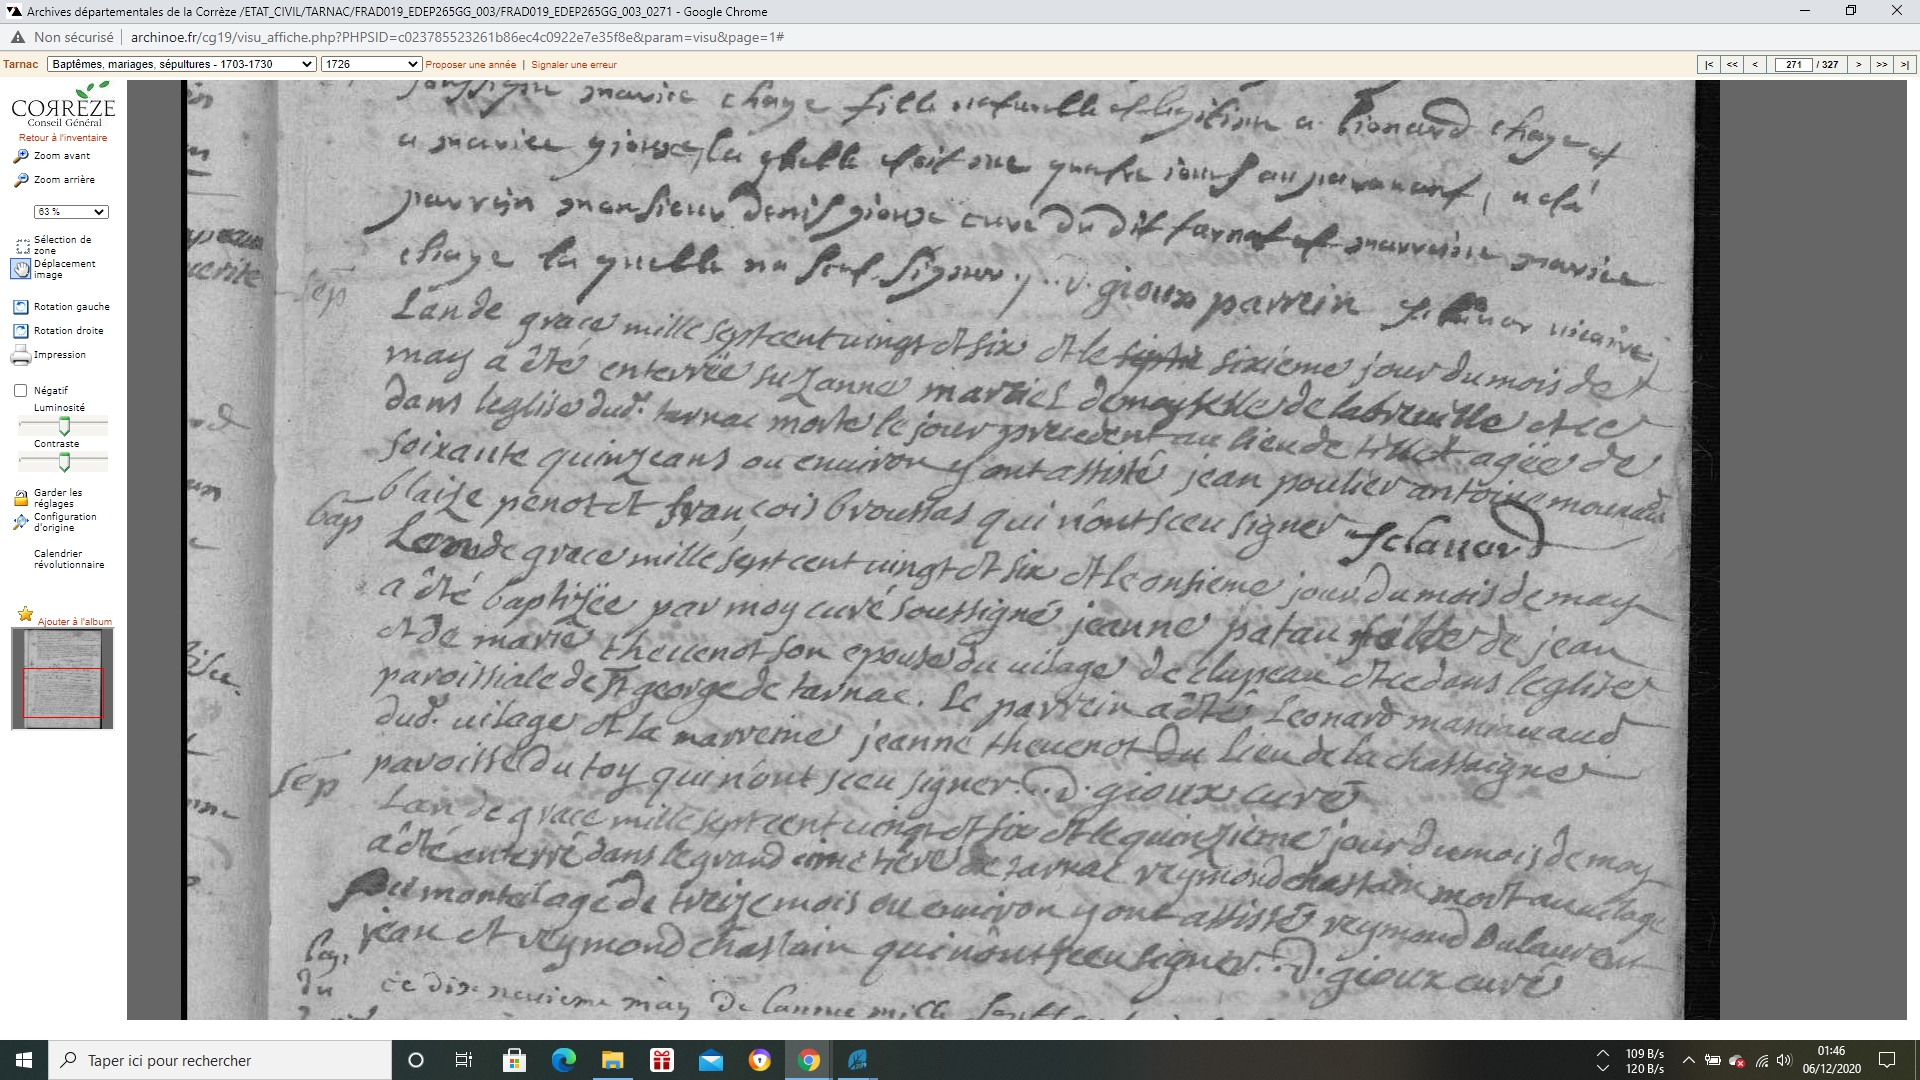 Archives départementales de la Corrèze /ETAT_CIVIL/TARNAC/FRAD019_EDEP265GG_003/FRAD019_EDEP265GG_003_0271 - Google Chrome
Non sécurisé | archinoe.fr/cg19/visu_affiche.php?PHPSID=c023785523261b86ec4c0922e7e35f8e&param=visu&page=1#
Tarnac Baptêmes, mariages, sépultures - 1703-1730 1726 Proposer une année | Signaler une erreur |< << < 271 / 327 > >> >|
CORRÈZE
Conseil Général
Retour à l'inventaire
Zoom avant
Zoom arrière
63 %
Sélection de
zone
Déplacement
image
Rotation gauche
Rotation droite
Impression
Négatif
Luminosité
Contraste
Garder les
réglages
Configuration
d'origine
Calendrier
révolutionnaire
Ajouter à l'album
marie chaze fille naturelle et legitime a lionard chaze et
a marie gioux, la quelle estoit nee quatre jours auparavant, a esté
parrein monsieur denis gioux curé du dit tarnat et marreine marie
chaze la quelle na seut signer. D. gioux parrein vicaire
sep
Lan de grace mille sept cent vingt et six et le sixieme jour du mois de
may a êté enterrée suzanne martiel demoyselle de labreuille et ce
dans leglise dud. tarnac morte le jour precedent au lieu de agée de
soixante quinze ans ou environ y ont assisté jean poulier antoine
blaize penot et françois broussas qui n'ont sceu signer
bap
Lan de grace mille sept cent vingt et six et le onsieme jour du mois de may
a êté baptizée par moy curé soussigné jeanne patau fille de jean
et de marie thevenot son epouse du vilage de et ce dans leglise
paroissiale de St george de tarnac. Le parrein a êté Leonard maniavaud
dud. vilage et la marreine jeanne thevenot du lieu de la chassaigne
paroisse du toy qui n'ont sceu signer. D. gioux curé
sep
Lan de grace mille sept cent vingt et six et le quinzieme jour du mois de may
a êté enterré dans le grand cimetiere de tarnac reymond chastain mort au vilage
lage de treize mois ou environ y ont assisté reymond dulaurent
jean et reymond chastain qui n'ont sceu signer. D. gioux curé
bap.
du ce dix neuvieme may de lannee mille
Taper ici pour rechercher
109 B/s
120 B/s
01:46
06/12/2020